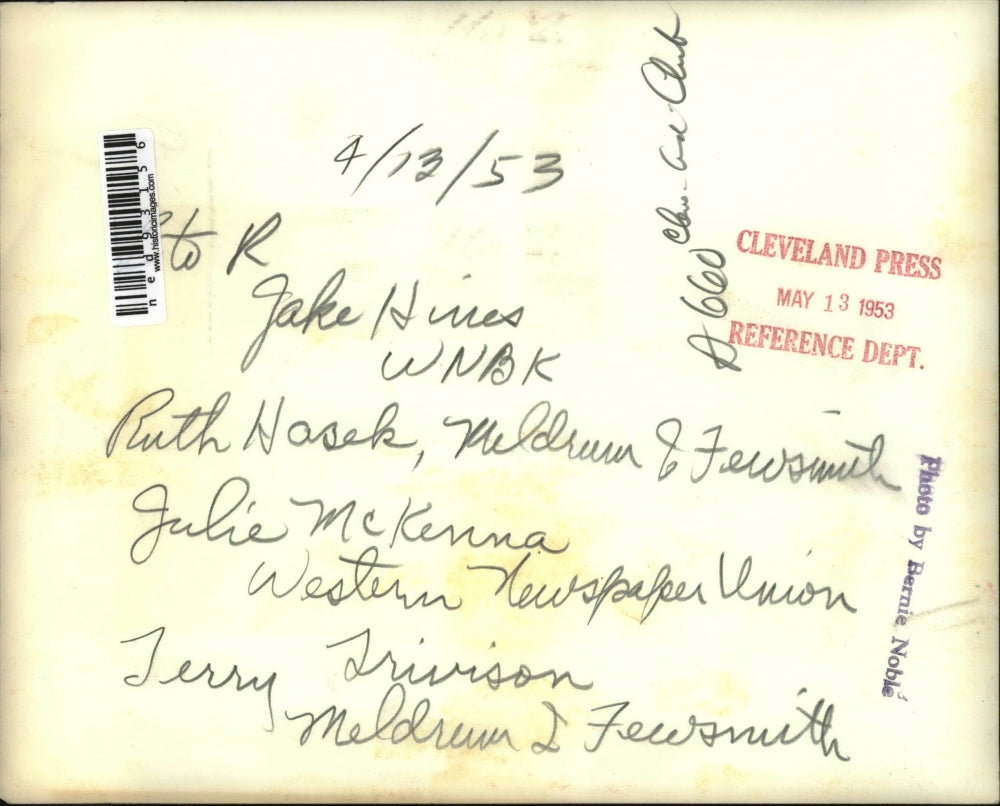 4/13/53
to R
Jake Hines
WNBK
Ruth Hasek, Meldrum & Fewsmith
Julie McKenna
Western Newspaper Union
Terry Trivison
Meldrum & Fewsmith
A 660 Clev. Ad Club
CLEVELAND PRESS
MAY 13 1953
REFERENCE DEPT.
Photo by Bernie Noble
www.historicimages.com
ned93156